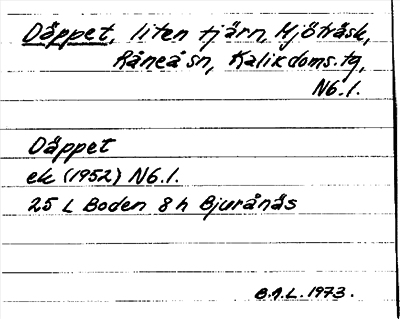 Dåppet, liten tjärn, Mjöträsk,
Råneå sn, Kalix doms. tg,
N6.1.
Dåppet
ek (1952) N6.1.
25 L Boden 8 h Bjurånäs
B.A.L. 1973.